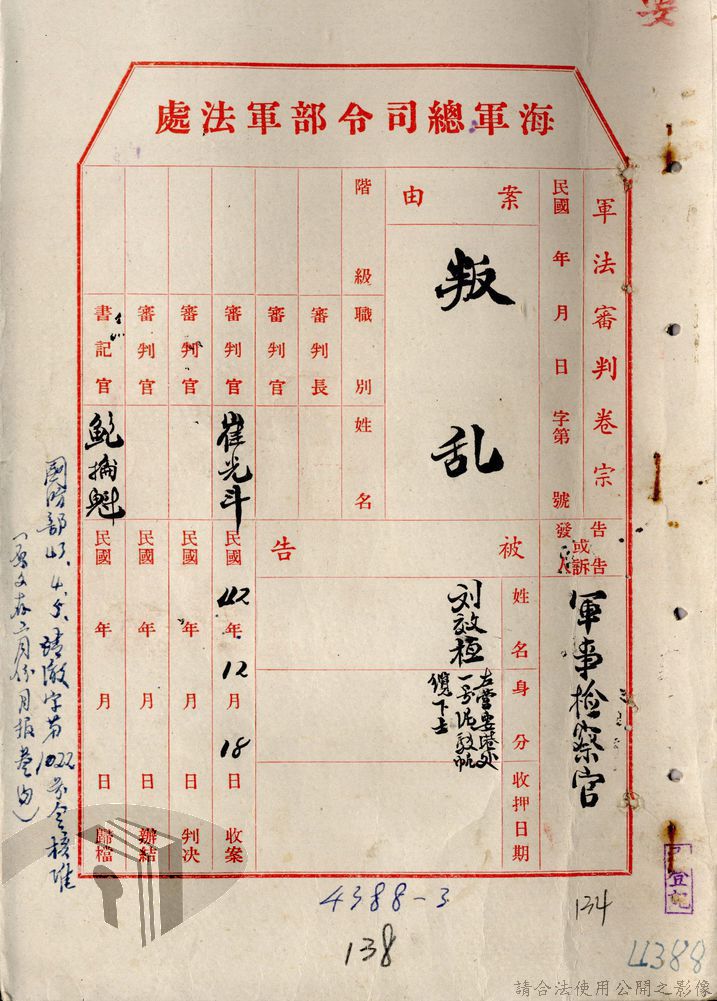 海軍總司令部軍法處
軍法審判卷宗
民國 年 月 日 字第 號
案由
叛乱
階級 職別 姓名
審判長
審判官
審判官 崔光斗
審判官
審判官
書記官 鮑掄魁
告發或告訴人
軍事檢察官
被告
姓名 身分 收押日期
刘效桓
左營要港处
一号泥駁帆
纜下士
民國42年12月18日收案
民國 年 月 日判決
民國 年 月 日辦結
民國 年 月 日歸檔
國防部43.4.5.清澈字第1022号令核准
(原文存二月份月报卷内)
登記
4388-3
138
134
4388
請合法使用公開之影像